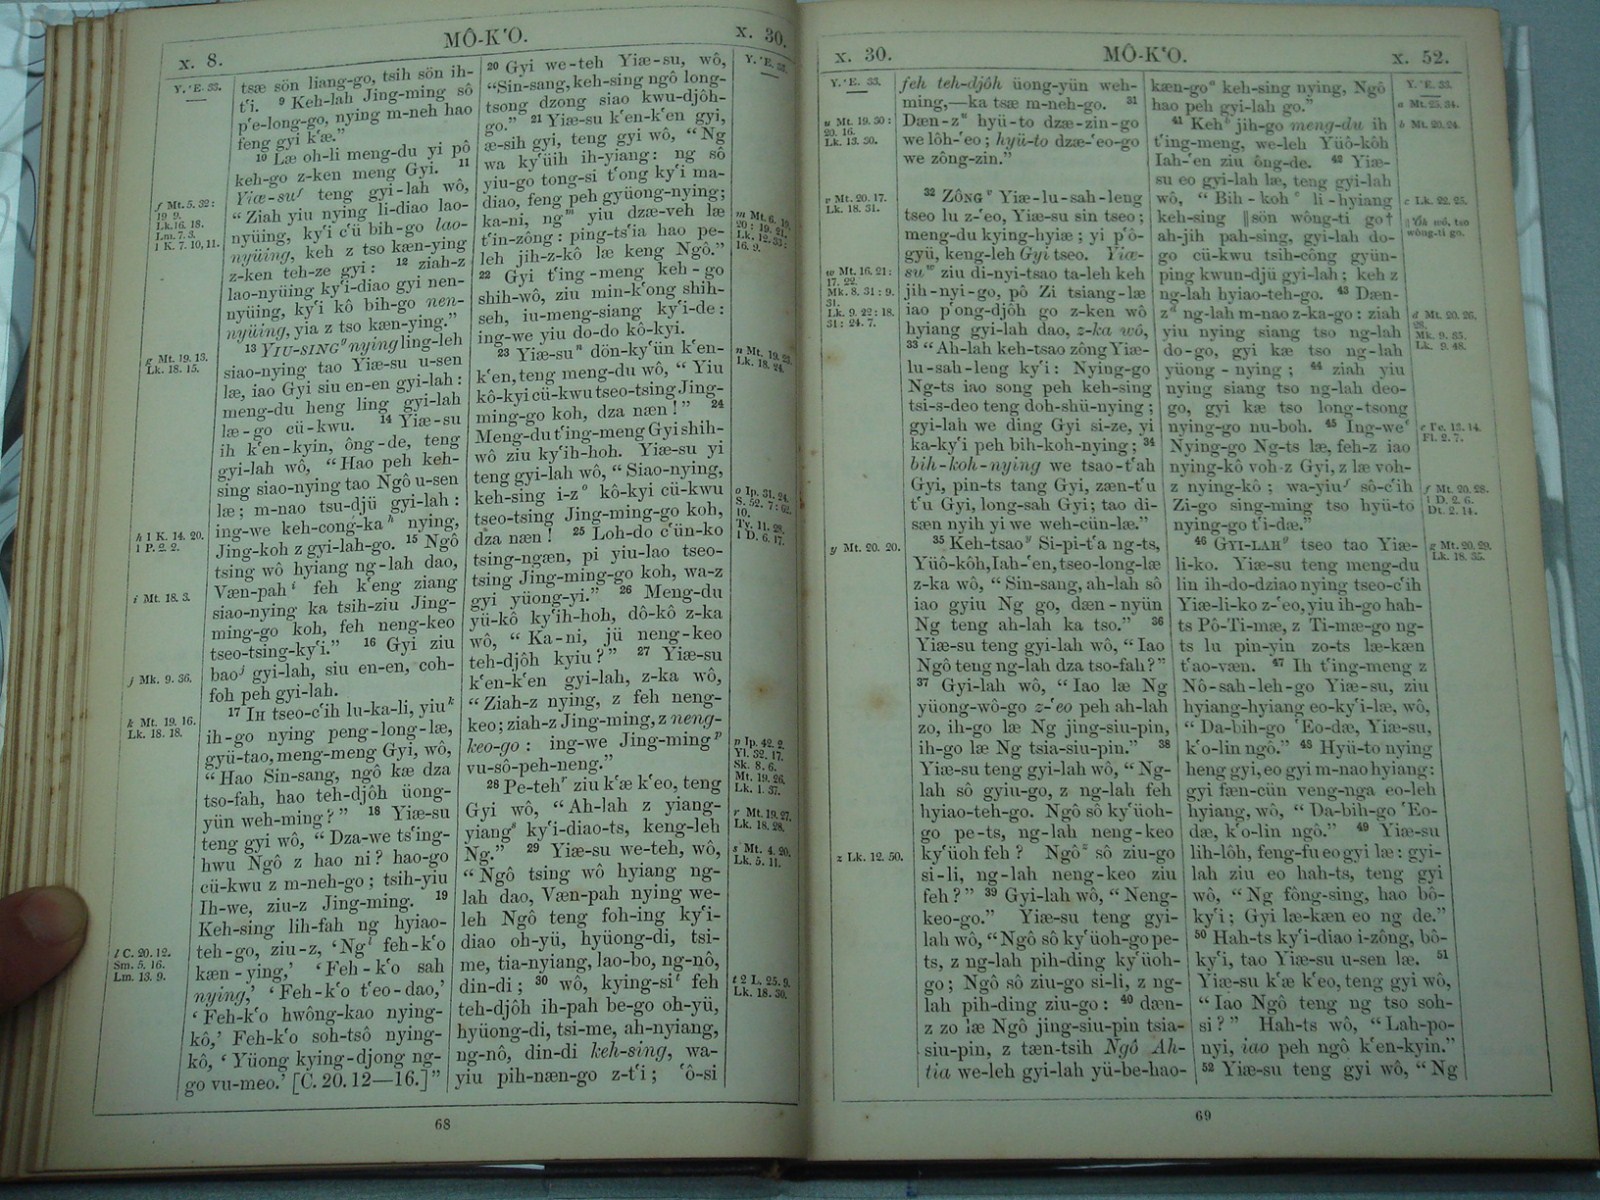 x. 8.
MÔ-K‘O.
x. 30.
Y. ‘E. 33.
f Mt. 5. 32:
19 9.
Lk. 16. 18.
Lm. 7. 3.
1 K. 7. 10, 11.
g Mt. 19. 13.
Lk. 18. 15.
h 1 K. 14. 20.
1 P. 2. 2.
i Mt. 18. 3.
j Mk. 9. 36.
k Mt. 19. 16.
Lk. 18. 18.
l C. 20. 12.
Sm. 5. 16.
Lm. 13. 9.
tsæ sön liang-go, tsih sön ih-
t‘i. 9 Keh-lah Jing-ming sô
p‘e-long-go, nying m-neh hao
feng gyi k‘æ.”
10 Læ oh-li meng-du yi pô
keh-go z-ken meng Gyi. 11
Yiæ-su f teng gyi-lah wô,
“ Ziah yiu nying li-diao lao-
nyüing, ky‘i c‘ü bih-go lao-
nyüing, keh z tso kæn-ying
z-ken teh-ze gyi : 12 ziah-z
lao-nyüing ky‘i-diao gyi nen-
nyüing, ky‘i kô bih-go nen-
nyüing, yia z tso kæn-ying.”
13 YIU-SING g nying ling-leh
siao-nying tao Yiæ-su u-sen
læ, iao Gyi siu en-en gyi-lah :
meng-du heng ling gyi-lah
læ-go cü-kwu. 14 Yiæ-su
ih k‘en-kyin, ông-de, teng
gyi-lah wô, “ Hao peh keh-
sing siao-nying tao Ngô u-sen
læ ; m-nao tsu-djü gyi-lah :
ing-we keh-cong-ka h nying,
Jing-koh z gyi-lah-go. 15 Ngô
tsing wô hyiang ng-lah dao,
Væn-pah i feh k‘eng ziang
siao-nying ka tsih-ziu Jing-
ming-go koh, feh neng-keo
tseo-tsing-ky‘i.” 16 Gyi ziu
bao j gyi-lah, siu en-en, coh-
foh peh gyi-lah.
17 IH tseo-c‘ih lu-ka-li, yiu k
ih-go nying peng-long-læ,
gyü-tao, meng-meng Gyi, wô,
“ Hao Sin-sang, ngô kæ dza
tso-fah, hao teh-djôh üong-
yün weh-ming ? ” 18 Yiæ-su
teng gyi wô, “ Dza-we ts‘ing-
hwu Ngô z hao ni ? hao-go
cü-kwu z m-neh-go ; tsih-yiu
Ih-we, ziu-z Jing-ming. 19
Keh-sing lih-fah ng hyiao-
teh-go, ziu-z, ‘ Ng l feh-k‘o
kæn - ying,’ ‘ Feh - k‘o sah
nying,’ ‘ Feh-k‘o t‘eo-dao,’
‘ Feh-k‘o hwông-kao nying-
kô,’ Feh-k‘o soh-tsô nying-
kô, ‘ Yüong kying-djong ng-
go vu-meo.’ [C. 20. 12—16.] ”
20 Gyi we-teh Yiæ-su, wô,
“Sin-sang, keh-sing ngô long-
tsong dzong siao kwu-djôh-
go.” 21 Yiæ-su k‘en-k‘en gyi,
æ-sih gyi, teng gyi wô, “ Ng
wa ky‘üih ih-yiang : ng sô
yiu-go tong-si t‘ong ky‘i ma-
diao, feng peh gyüong-nying ;
ka-ni, ng m yiu dzæ-veh læ
t‘in-zông : ping-ts‘ia hao pe-
leh jih-z-kô læ keng Ngô.”
22 Gyi t‘ing - meng keh - go
shih-wô, ziu min-k‘ong shih-
seh, iu-meng-siang ky‘i-de :
ing-we yiu do-do kô-kyi.
23 Yiæ-su n dön-ky‘ün k‘en-
k‘en, teng meng-du wô, “ Yiu
kô-kyi cü-kwu tseo-tsing Jing-
ming-go koh, dza næn ! ” 24
Meng-du t‘ing-meng Gyi shih-
wô ziu ky‘ih-hoh. Yiæ-su yi
teng gyi-lah wô, “ Siao-nying,
keh-sing i-z o kô-kyi cü-kwu
tseo-tsing Jing-ming-go koh,
dza næn ! 25 Loh-do c‘ün-ko
tsing-ngæn, pi yiu-lao tseo-
tsing Jing-ming-go koh, wa-z
gyi yüong-yi.” 26 Meng-du
yü-kô ky‘ih-hoh, dô-kô z-ka
wô, “ Ka-ni, jü neng-keo
teh-djôh kyiu ? ” 27 Yiæ-su
k‘en-k‘en gyi-lah, z-ka wô,
“ Ziah-z nying, z feh neng-
keo ; ziah-z Jing-ming, z neng-
keo-go : ing-we Jing-ming p
vu-sô-peh-neng.”
28 Pe-teh r ziu k‘æ k‘eo, teng
Gyi wô, “ Ah-lah z yiang-
yiang s ky‘i-diao-ts, keng-leh
Ng.” 29 Yiæ-su we-teh, wô,
“ Ngô tsing wô hyiang ng-
lah dao, Væn-pah nying we-
leh Ngô teng foh-ing ky‘i-
diao oh-yü, hyüong-di, tsi-
me, tia-nyiang, lao-bo, ng-nô,
din-di ; 30 wô, kying-si t feh
teh-djôh ih-pah be-go oh-yü,
hyüong-di, tsi-me, ah-nyiang,
ng-nô, din-di keh-sing, wa-
yiu pih-næn-go z-t‘i ; ‘ô-si
m Mt. 6. 19.
20 : 19. 21.
Lk. 12. 33 :
16. 9.
n Mt. 19. 23.
Lk. 18. 24.
o Ip. 31. 24.
S. 52. 7 : 62.
10.
Ty. 11. 28.
1 D. 6. 17.
p Ip. 42. 2.
Yl. 32. 17.
Sk. 8. 6.
Mt. 19. 26.
Lk. 1. 37.
r Mt. 19. 27.
Lk. 18. 28.
s Mt. 4. 20.
Lk. 5. 11.
t 2 L. 25. 9.
Lk. 18. 30.
68
x. 30.
MÔ-K‘O.
x. 52.
Y. ‘E. 33.
u Mt. 19. 30 :
20. 16.
Lk. 13. 30.
v Mt. 20. 17.
Lk. 18. 31.
w Mt. 16. 21 :
17. 22.
Mk. 8. 31 : 9.
31.
Lk. 9. 22 : 18.
31 : 24. 7.
y Mt. 20. 20.
z Lk. 12. 50.
feh teh-djôh üong-yün weh-
ming,—ka tsæ m-neh-go. 31
Dæn-z u hyü-to dzæ-zin-go
we lôh-‘eo ; hyü-to dzæ-‘eo-go
we zông-zin.”
32 ZÔNG v Yiæ-lu-sah-leng
tseo lu z-‘eo, Yiæ-su sin tseo ;
meng-du kying-hyiæ ; yi p‘ô-
gyü, keng-leh Gyi tseo. Yiæ-
su w ziu di-nyi-tsao ta-leh keh
jih-nyi-go, pô Zi tsiang-læ
iao p‘ong-djôh go z-ken wô
hyiang gyi-lah dao, z-ka wô,
33 “ Ah-lah keh-tsao zông Yiæ-
lu-sah-leng ky‘i : Nying-go
Ng-ts iao song peh keh-sing
tsi-s-deo teng doh-shü-nying ;
gyi-lah we ding Gyi si-ze, yi
ka-ky‘i peh bih-koh-nying ; 34
bih-koh-nying we tsao-t‘ah
Gyi, pin-ts tang Gyi, zæn-t‘u
t‘u Gyi, long-sah Gyi ; tao di-
sæn nyih yi we weh-cün-læ.”
35 Keh-tsao y Si-pi-t‘a ng-ts,
Yüô-kôh, Iah-‘en, tseo-long-læ
z-ka wô, “ Sin-sang, ah-lah sô
iao gyiu Ng go, dæn - nyün
Ng teng ah-lah ka tso.” 36
Yiæ-su teng gyi-lah wô, “ Iao
Ngô teng ng-lah dza tso-fah ? ”
37 Gyi-lah wô, “ Iao læ Ng
yüong-wô-go z-‘eo peh ah-lah
zo, ih-go læ Ng jing-siu-pin,
ih-go læ Ng tsia-siu-pin.” 38
Yiæ-su teng gyi-lah wô, “ Ng-
lah sô gyiu-go, z ng-lah feh
hyiao-teh-go. Ngô sô ky‘üoh-
go pe-ts, ng-lah neng-keo
ky‘üoh feh ? Ngô z sô ziu-go
si-li, ng-lah neng-keo ziu
feh ? ” 39 Gyi-lah wô, “ Neng-
keo-go.” Yiæ-su teng gyi-
lah wô, “ Ngô sô ky‘üoh-go pe-
ts, z ng-lah pih-ding ky‘üoh-
go ; Ngô sô ziu-go si-li, z ng-
lah pih-ding ziu-go : 40 dæn-
z zo læ Ngô jing-siu-pin tsia-
siu-pin, z tæn-tsih Ngô Ah-
tia we-leh gyi-lah yü-be-hao-
kæn-go a keh-sing nying, Ngô
hao peh gyi-lah go.”
41 Keh b jih-go meng-du ih
t‘ing-meng, we-leh Yüô-kôh
Iah-‘en ziu ông-de. 42 Yiæ-
su eo gyi-lah læ, teng gyi-lah
wô, “ Bih - koh c li - hyiang
keh-sing ‖ sön wông-ti go†
ah-jih pah-sing, gyi-lah do-
go cü-kwu tsih-công gyün-
ping kwun-djü gyi-lah ; keh z
ng-lah hyiao-teh-go. 43 Dæn-
z d ng-lah m-nao z-ka-go : ziah
yiu nying siang tso ng-lah
do-go, gyi kæ tso ng-lah
yüong - nying ; 44 ziah yiu
nying siang tso ng-lah deo-
go, gyi kæ tso long-tsong
nying-go nu-boh. 45 Ing-we e
Nying-go Ng-ts læ, feh-z iao
nying-kô voh-z Gyi, z læ voh-
z nying-kô ; wa-yiu f sô-c‘ih
Zi-go sing-ming tso hyü-to
nying-go t‘i-dæ.”
46 GYI-LAH g tseo tao Yiæ-
li-ko. Yiæ-su teng meng-du
lin ih-do-dziao nying tseo-c‘ih
Yiæ-li-ko z-‘eo, yiu ih-go hah-
ts Pô-Ti-mæ, z Ti-mæ-go ng-
ts lu pin-yin zo-ts læ-kæn
t‘ao-væn. 47 Ih t‘ing-meng z
Nô-sah-leh-go Yiæ-su, ziu
hyiang-hyiang eo-ky‘i-læ, wô,
“ Da-bih-go ‘Eo-dæ, Yiæ-su,
k‘o-lin ngô.” 48 Hyü-to nying
heng gyi, eo gyi m-nao hyiang :
gyi fæn-cün veng-nga eo-leh
hyiang, wô, “ Da-bih-go ‘Eo-
dæ, k‘o-lin ngô.” 49 Yiæ-su
lih-lôh, feng-fu eo gyi læ : gyi-
lah ziu eo hah-ts, teng gyi
wô, “ Ng fông-sing, hao bô-
ky‘i ; Gyi læ-kæn eo ng de.”
50 Hah-ts ky‘i-diao i-zông, bô-
ky‘i, tao Yiæ-su u-sen læ. 51
Yiæ-su k‘æ k‘eo, teng gyi wô,
“ Iao Ngô teng ng tso soh-
si ? ” Hah-ts wô, “ Lah-po-
nyi, iao peh ngô k‘en-kyin.”
52 Yiæ-su teng gyi wô, “ Ng
Y. ‘E. 33.
a Mt. 25. 34.
b Mt. 20. 24.
c Lk. 22. 25.
‖ Yia wô, tso
wông-ti go.
d Mt. 20. 26,
28.
Mk. 9. 35.
Lk. 9. 48.
e Fe. 13. 14.
Fl. 2. 7.
f Mt. 20. 28.
1 D. 2. 6.
Dt. 2. 14.
g Mt. 20. 29.
Lk. 18. 35.
69